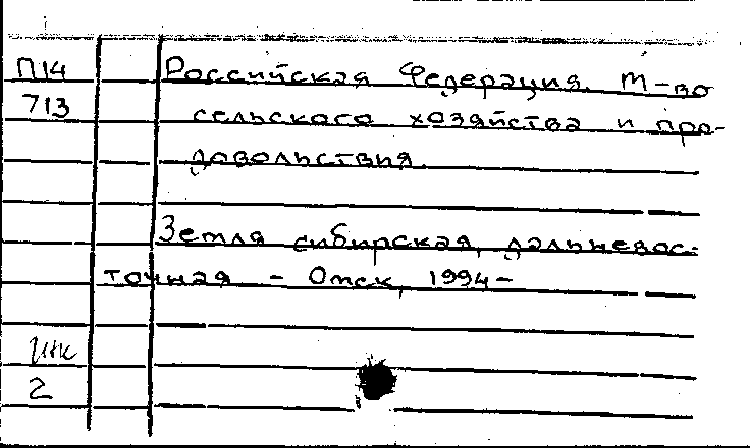 П14 Российская Федерация. М-во
713 сельского хозяйства и про-
довольствия.
Земля сибирская, дальневос-
точная - Омск, 1994-
2